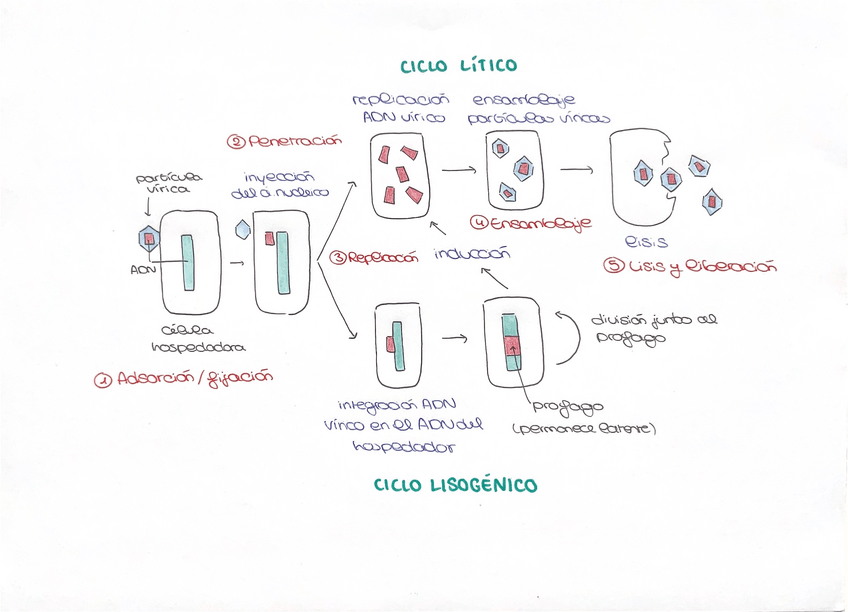 CICLO LÍTICO
replicación
ADN vírico
ensamblaje
partículas víricas
② Penetración
inyección
del á. nucleico
partícula
vírica
ADN
célula
hospedadora
① Adsorción/fijación
③ Replicación
inducción
④ Ensamblaje
lisis
⑤ Lisis y liberación
división junto al
profago
integración ADN
vírico en el ADN del
hospedador
profago
(permanece latente)
CICLO LISOGÉNICO